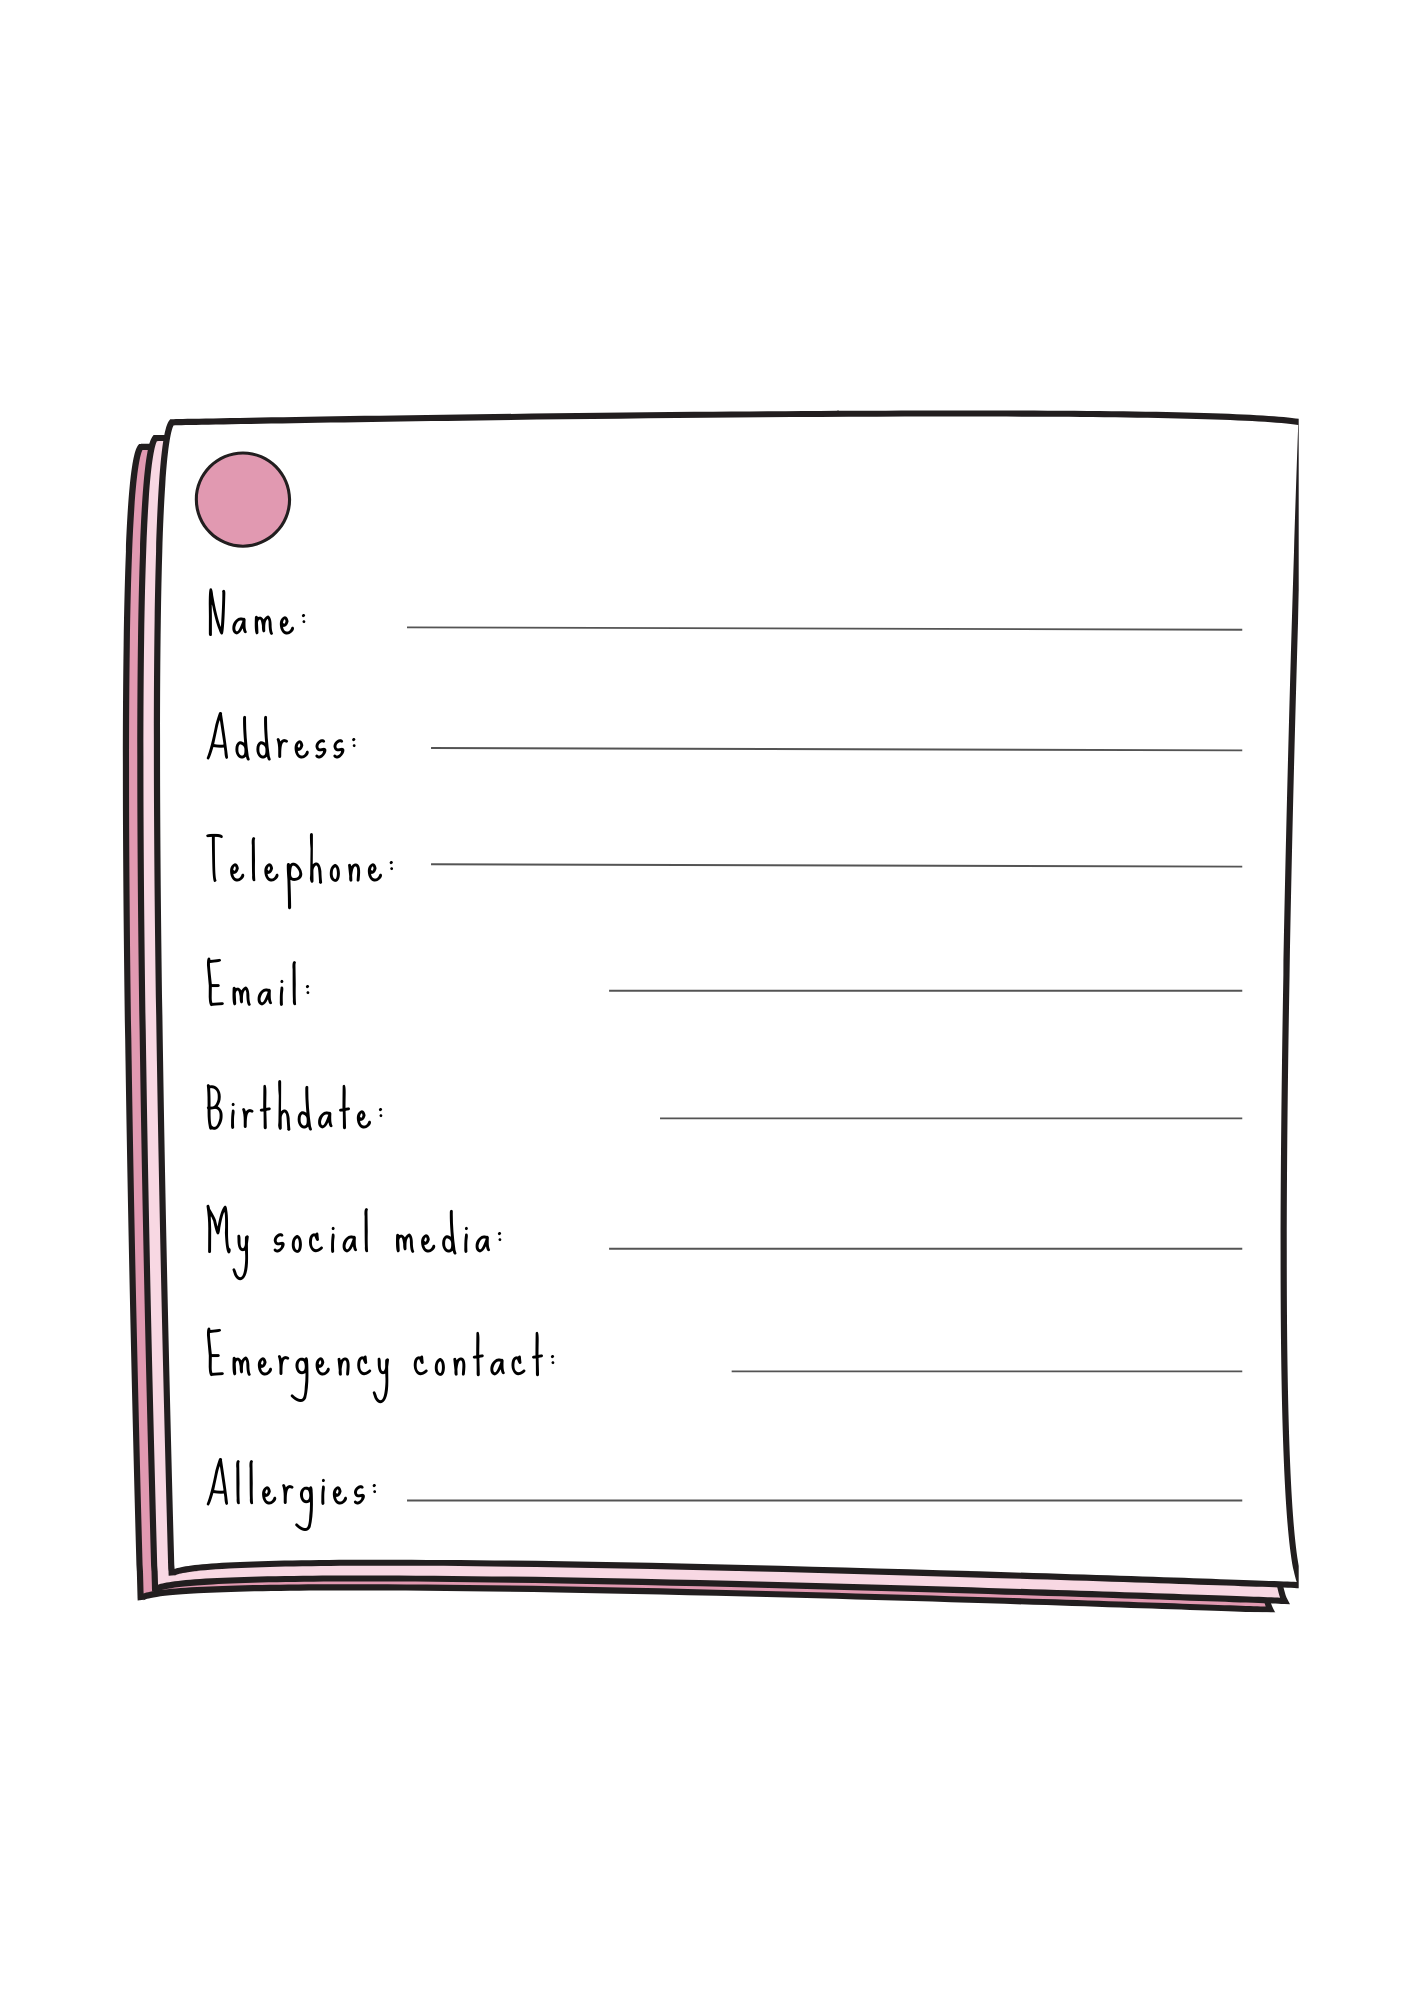 Name:
Address:
Telephone:
Email:
Birthdate:
My social media:
Emergency contact:
Allergies: